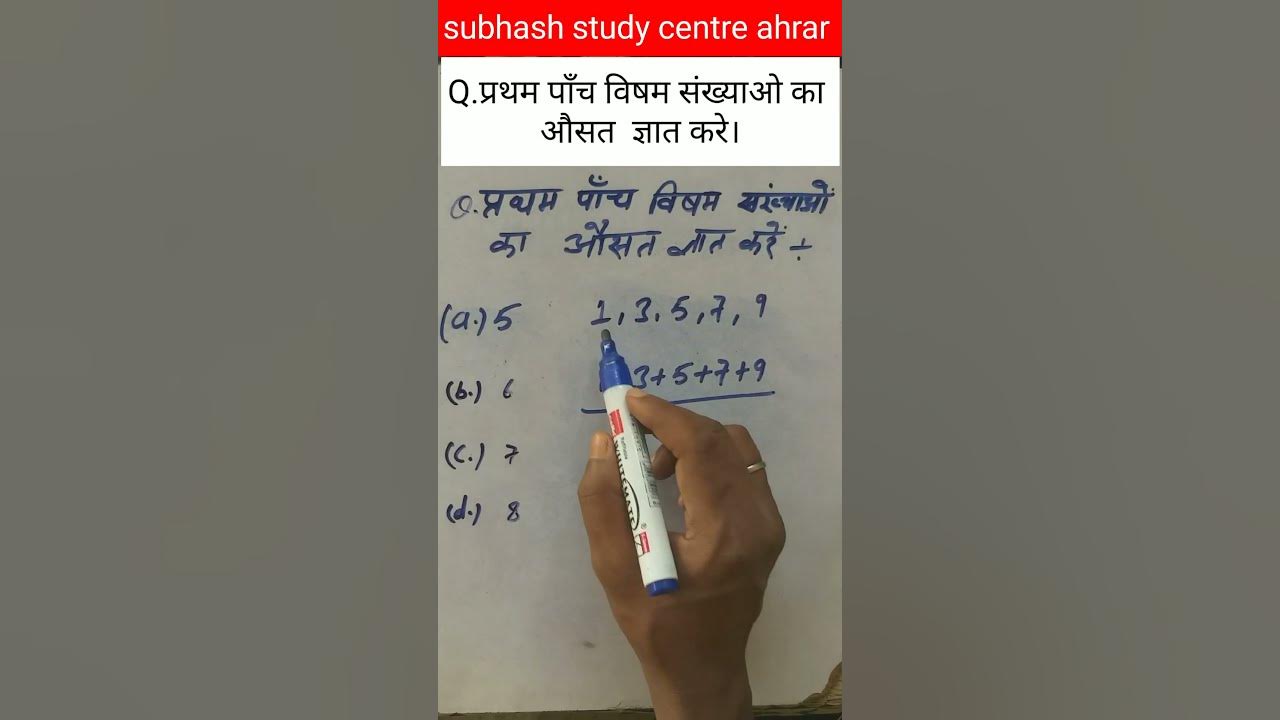 subhash study centre ahrar
Q.प्रथम पाँच विषम संख्याओ का
औसत ज्ञात करे।
Q.प्रथम पाँच विषम संख्याओं
का औसत ज्ञात करें ÷
(a.) 5
1, 3, 5, 7, 9
3+5+7+9
(b.) 6
(c.) 7
(d.) 8
WHITEMATE